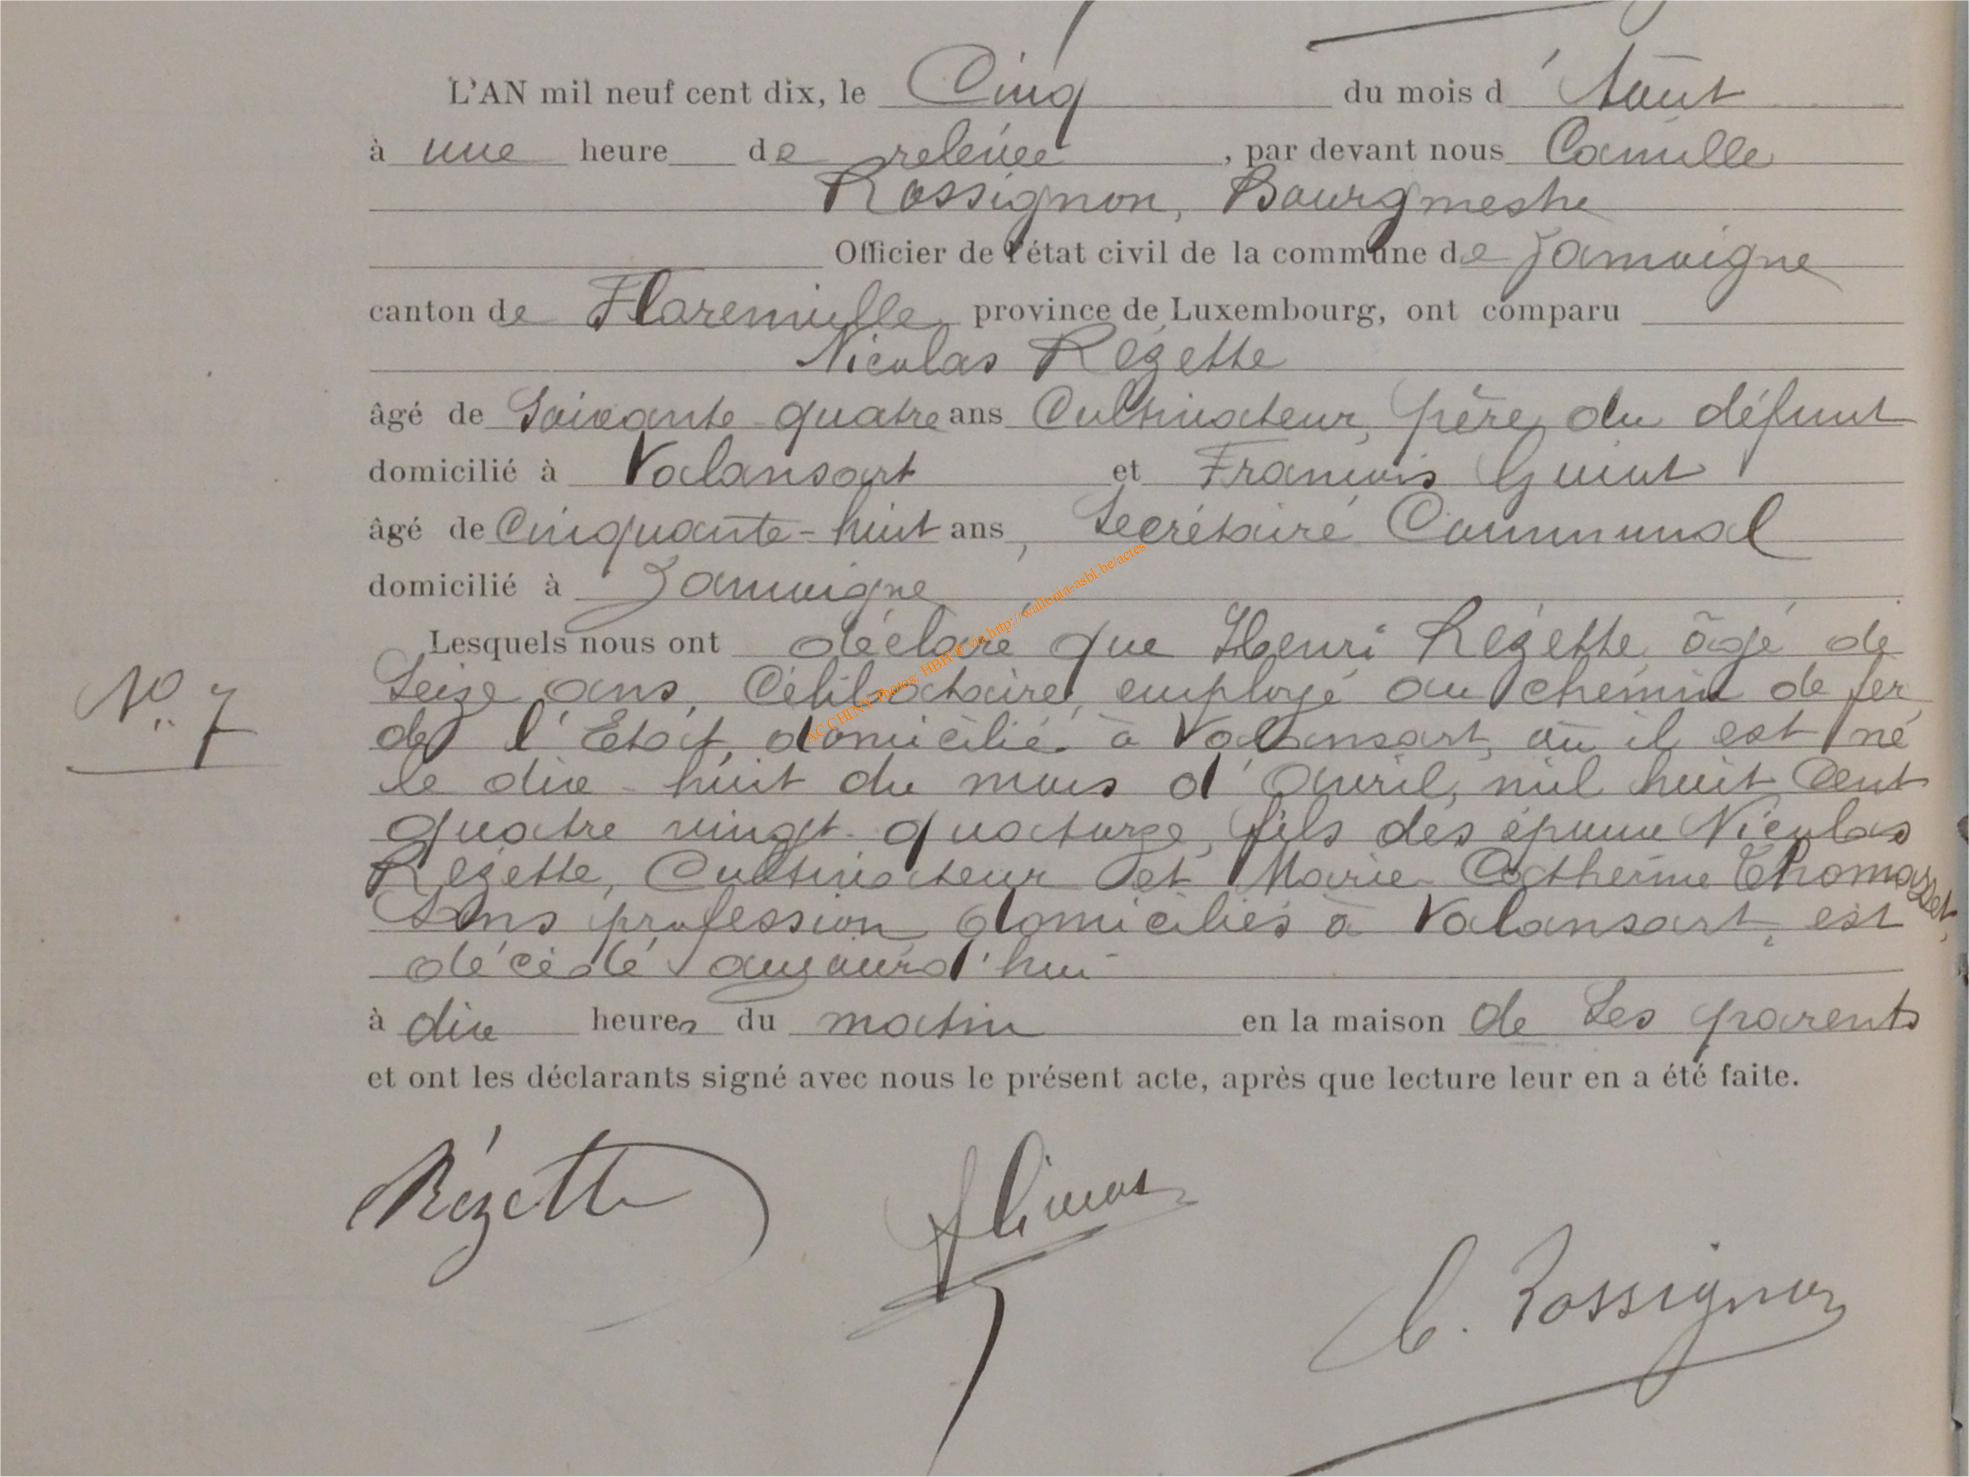 L'AN mil neuf cent dix, le Cinq du mois d'Août
à une heure de relevée, par devant nous Camille
Rossignon, Bourgmestre
Officier de l'état civil de la commune de Jamoigne
canton de Florenville province de Luxembourg, ont comparu
Nicolas Rézette
âgé de Soixante quatre ans Cultivateur, père du défunt
domicilié à Valansart et François
âgé de Cinquante-huit ans, Secrétaire Communal
domicilié à Jamoigne
Lesquels nous ont déclaré que Henri Rézette, âgé de
Seize ans, Célibataire, employé au chemin de fer
N° 7
de l'Etat, domicilié à Valansart, où il est né
le dix-huit du mois d'Avril, mil huit Cent
quatre vingt-quatorze, fils des époux Nicolas
Rézette, Cultivateur et Marie Catherine Thomasset,
Sans profession, domiciliés à Valansart, est
décédé aujourd'hui
à dix heures du matin en la maison de Ses parents
et ont les déclarants signé avec nous le présent acte, après que lecture leur en a été faite.
Rézette
C. Rossignon
ACCHINY Photos HBH @ via http://wallonia-asbl.be/actes